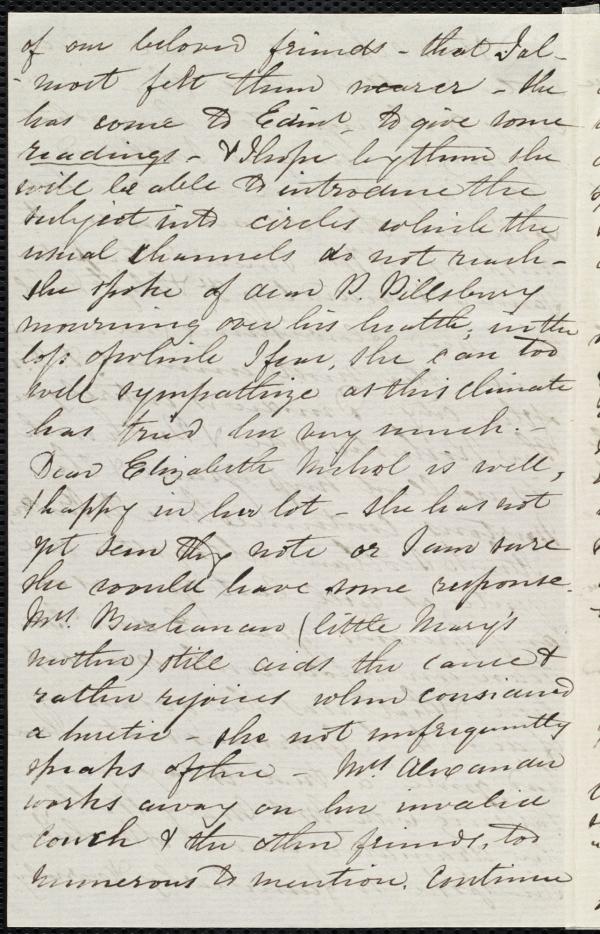 of our beloved friends - that I al-
- most felt them nearer - She
has come to Edinb. to give some
readings - & I hope by them she
will be able to introduce the
subject into circles which the
usual channels do not reach -
She spoke of dear P. Pillsbury
mourning over his health, in the
loss of which I fear, she can too
well sympathize as this climate
has tried her very much. -
Dear Elizabeth Nichol is well,
& happy in her lot - she has not
yet seen thy note or I am sure
she would have some response.
Mrs. Buchanan (little Mary's
mother) still aids the cause &
rather rejoices when considered
a heretic - she not unfrequently
speaks of thee - Mrs Alexander
works away on her invalid
couch & the other friends, too
numerous to mention. Continue